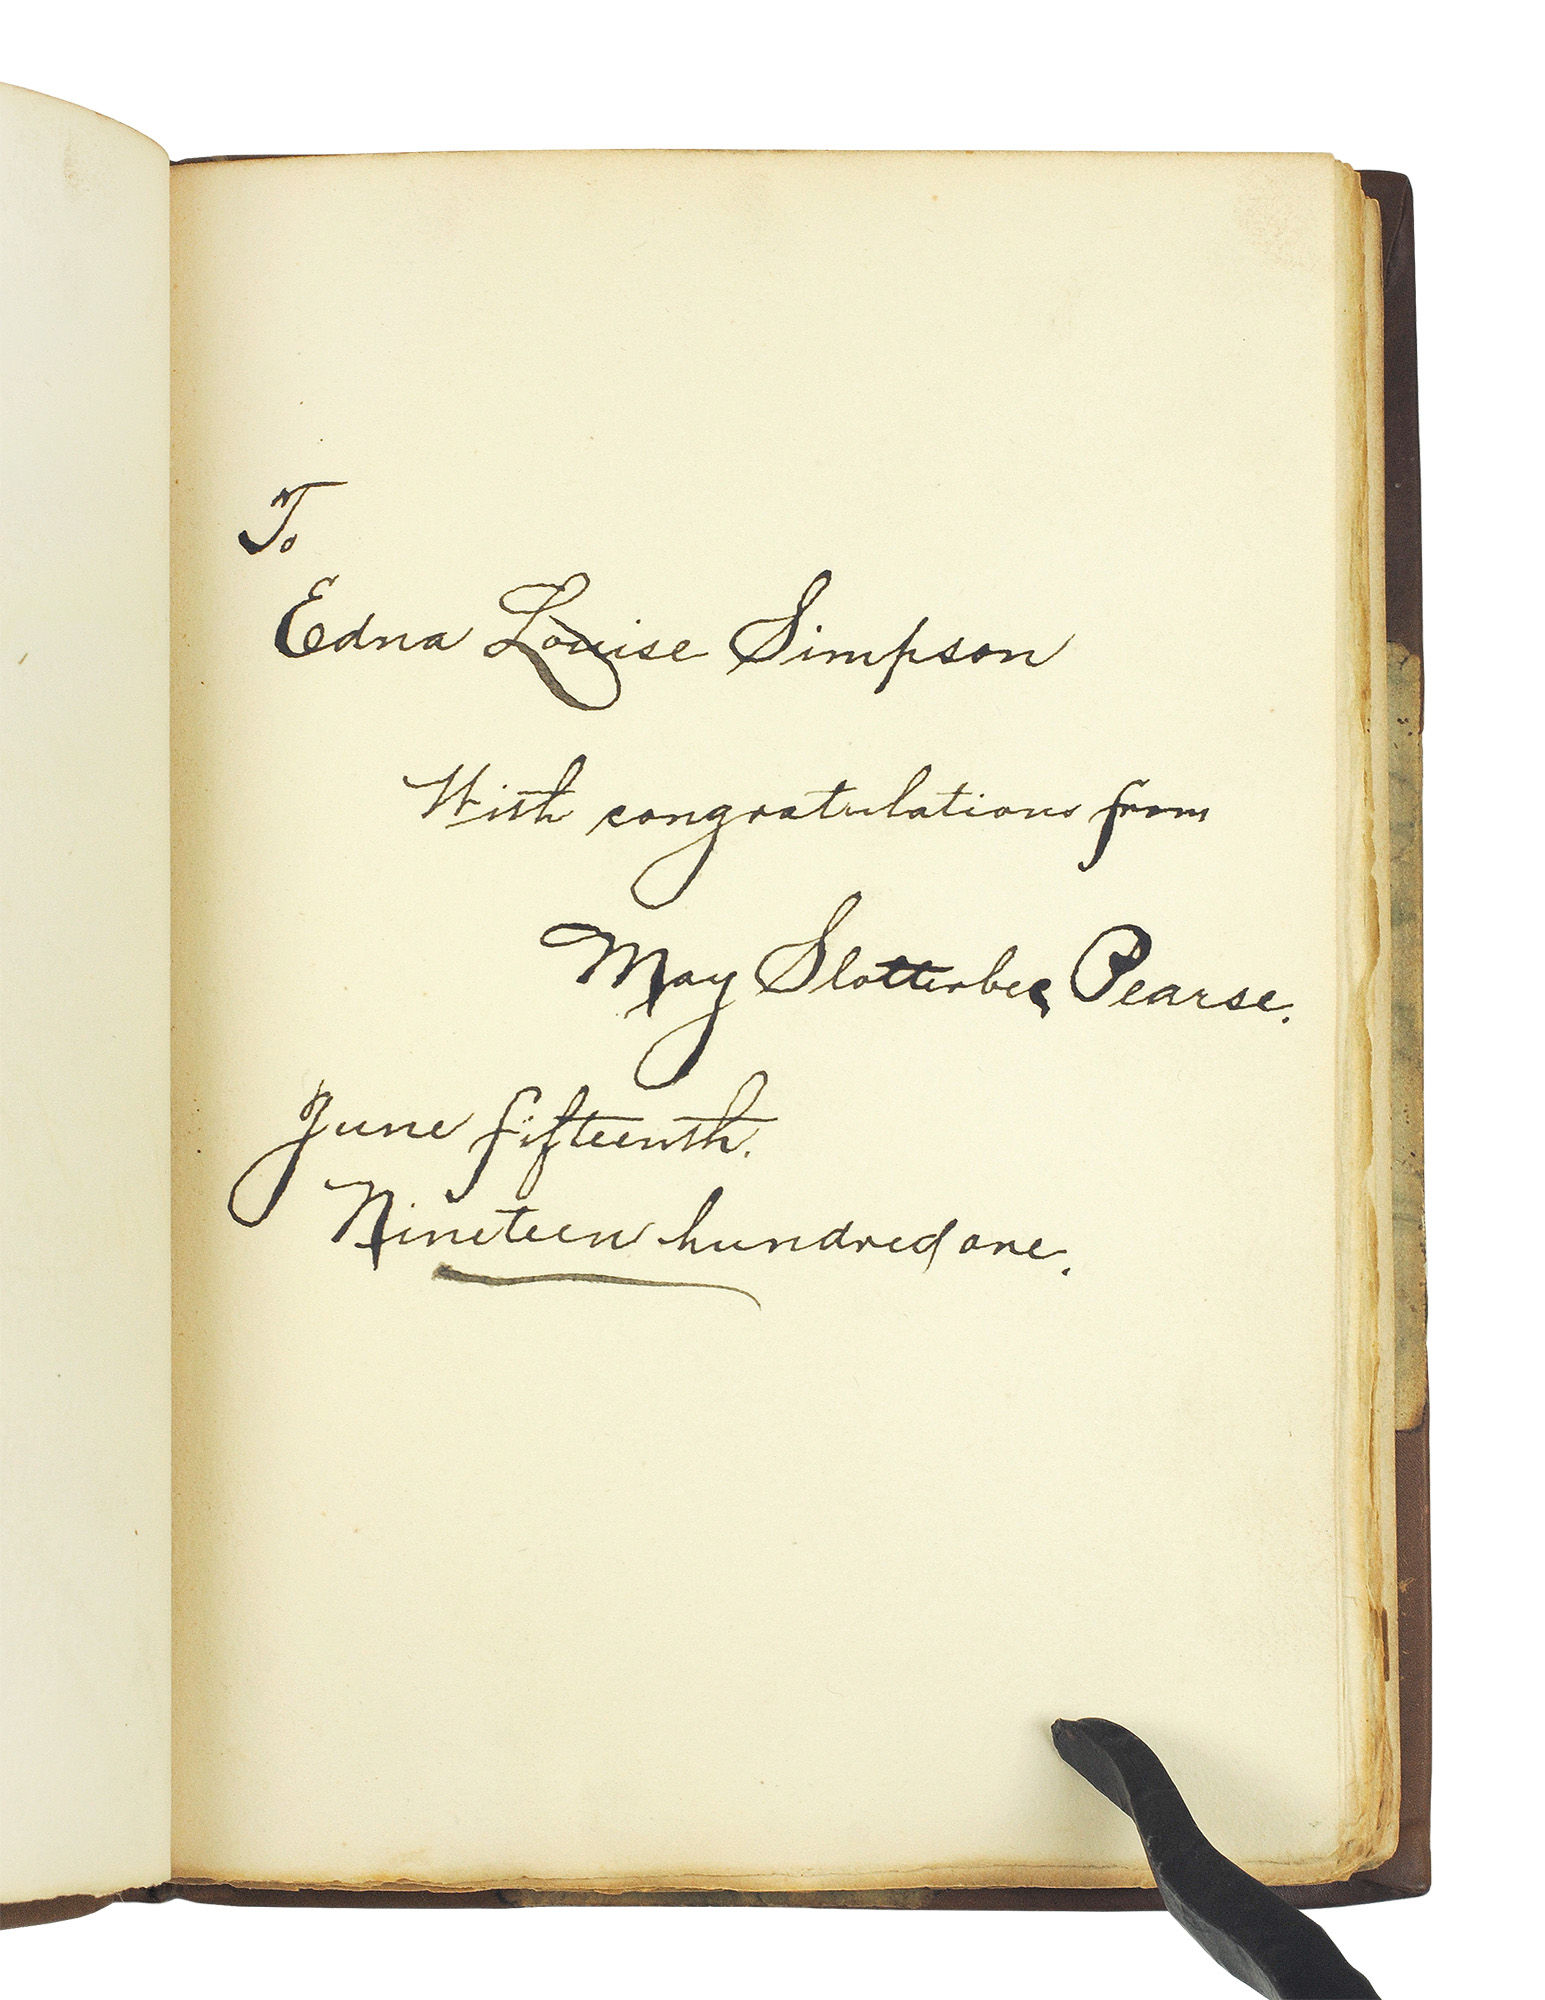 To
Edna Louise Simpson
With congratulations from
May Slotterbec Pearse.
June fifteenth.
Nineteen hundred one.